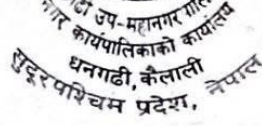 उप-महानगर
नगर कार्यपालिकाको कार्यालय
धनगढी, कैलाली
सुदूरपश्चिम प्रदेश, नेपाल